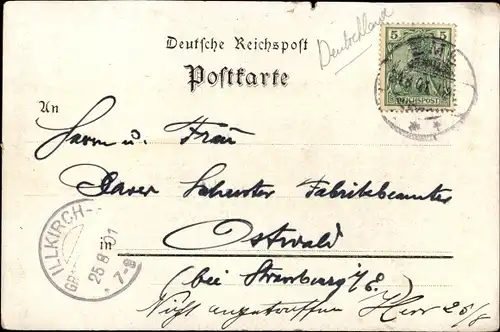 Deutsche Reichspost
Deutschland
Postkarte
5 5
REICHSPOST
An
Herrn u. Frau
Xaver Schuster Fabrikbeamter
in Ostwald
(bei Strassburg i/E.)
Nicht angetroffen Herr 25/8
ILLKIRCH-
25.8.01
7-8